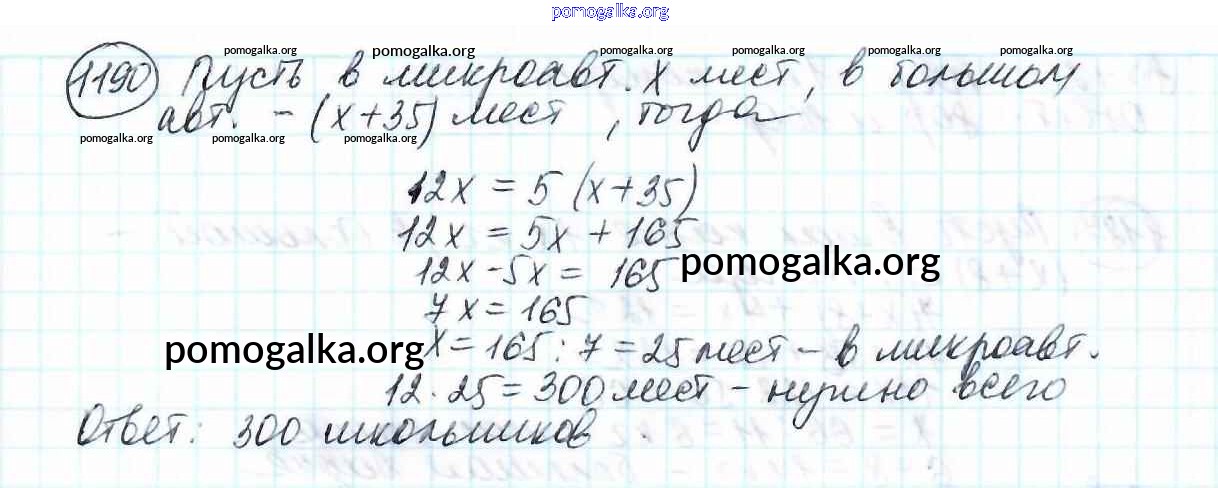 pomogalka.org
pomogalka.org pomogalka.org pomogalka.org pomogalka.org pomogalka.org
1190 Пусть в микроавт. x мест, в большом
авт. - (x+35) мест, тогда
pomogalka.org pomogalka.org pomogalka.org
12x = 5 (x+35)
12x = 5x + 165
pomogalka.org
12x - 5x = 165
7x = 165
pomogalka.org
x = 165 : 7 = 25 мест - в микроавт.
12 · 25 = 300 мест - нужно всего
Ответ: 300 школьников.